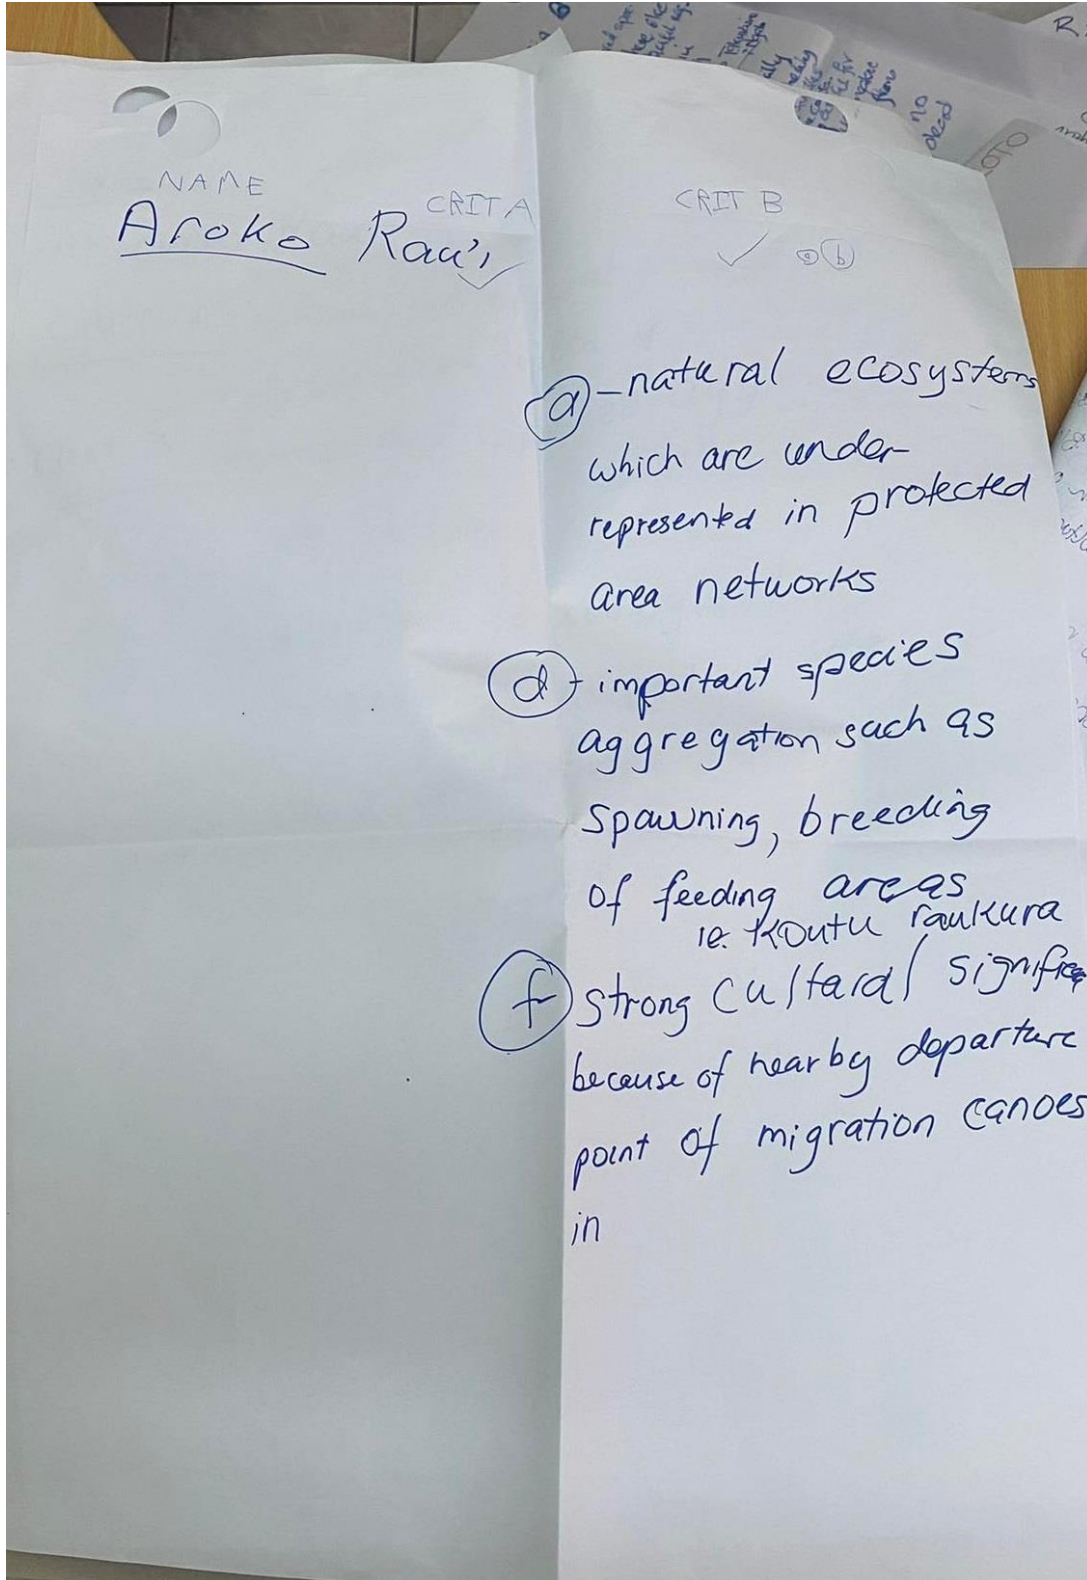 NAME
CRIT A
CRIT B
Aroko Rau'i ✓
✓ a b
a - natural ecosystems
which are under-
represented in protected
area networks
d - important species
aggregation such as
spawning, breeding
of feeding areas
ie. Koutu raukura
f strong cultaral
because of nearby departure
point of migration canoes
in
no
R